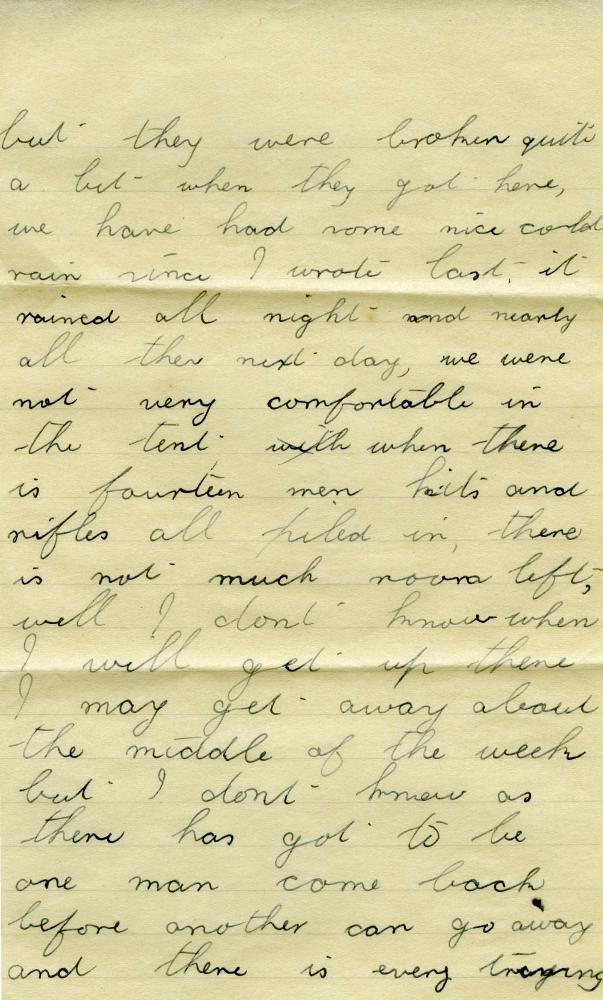 but they were broken quite
a bit when they got here,
we have had some nice cold
rain since I wrote last, it
rained all night and nearly
all ther next day, we were
not very comfortable in
the tent with when there
is fourteen men kits and
rifles all piled in, there
is not much room left,
well I dont know when
I will get up there
I may get away about
the middle of the week
but I dont know as
there has got to be
one man come back
before another can go away
and there is every trying